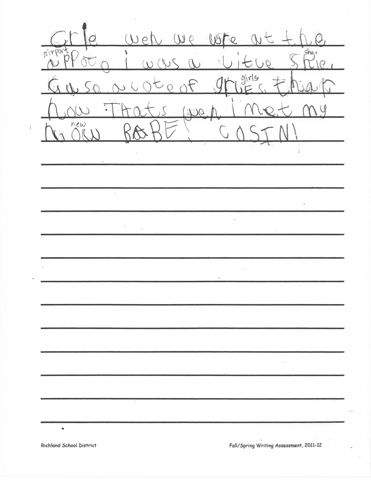 Crle weh we wre at the
airport shy
apporo i was a litue Shie.
Cuse acote of gruies thiar
girls
how. Thats weh i met my
new
now BABE! COSIN!
Richland School District Fall/Spring Writing Assessment, 2011-12